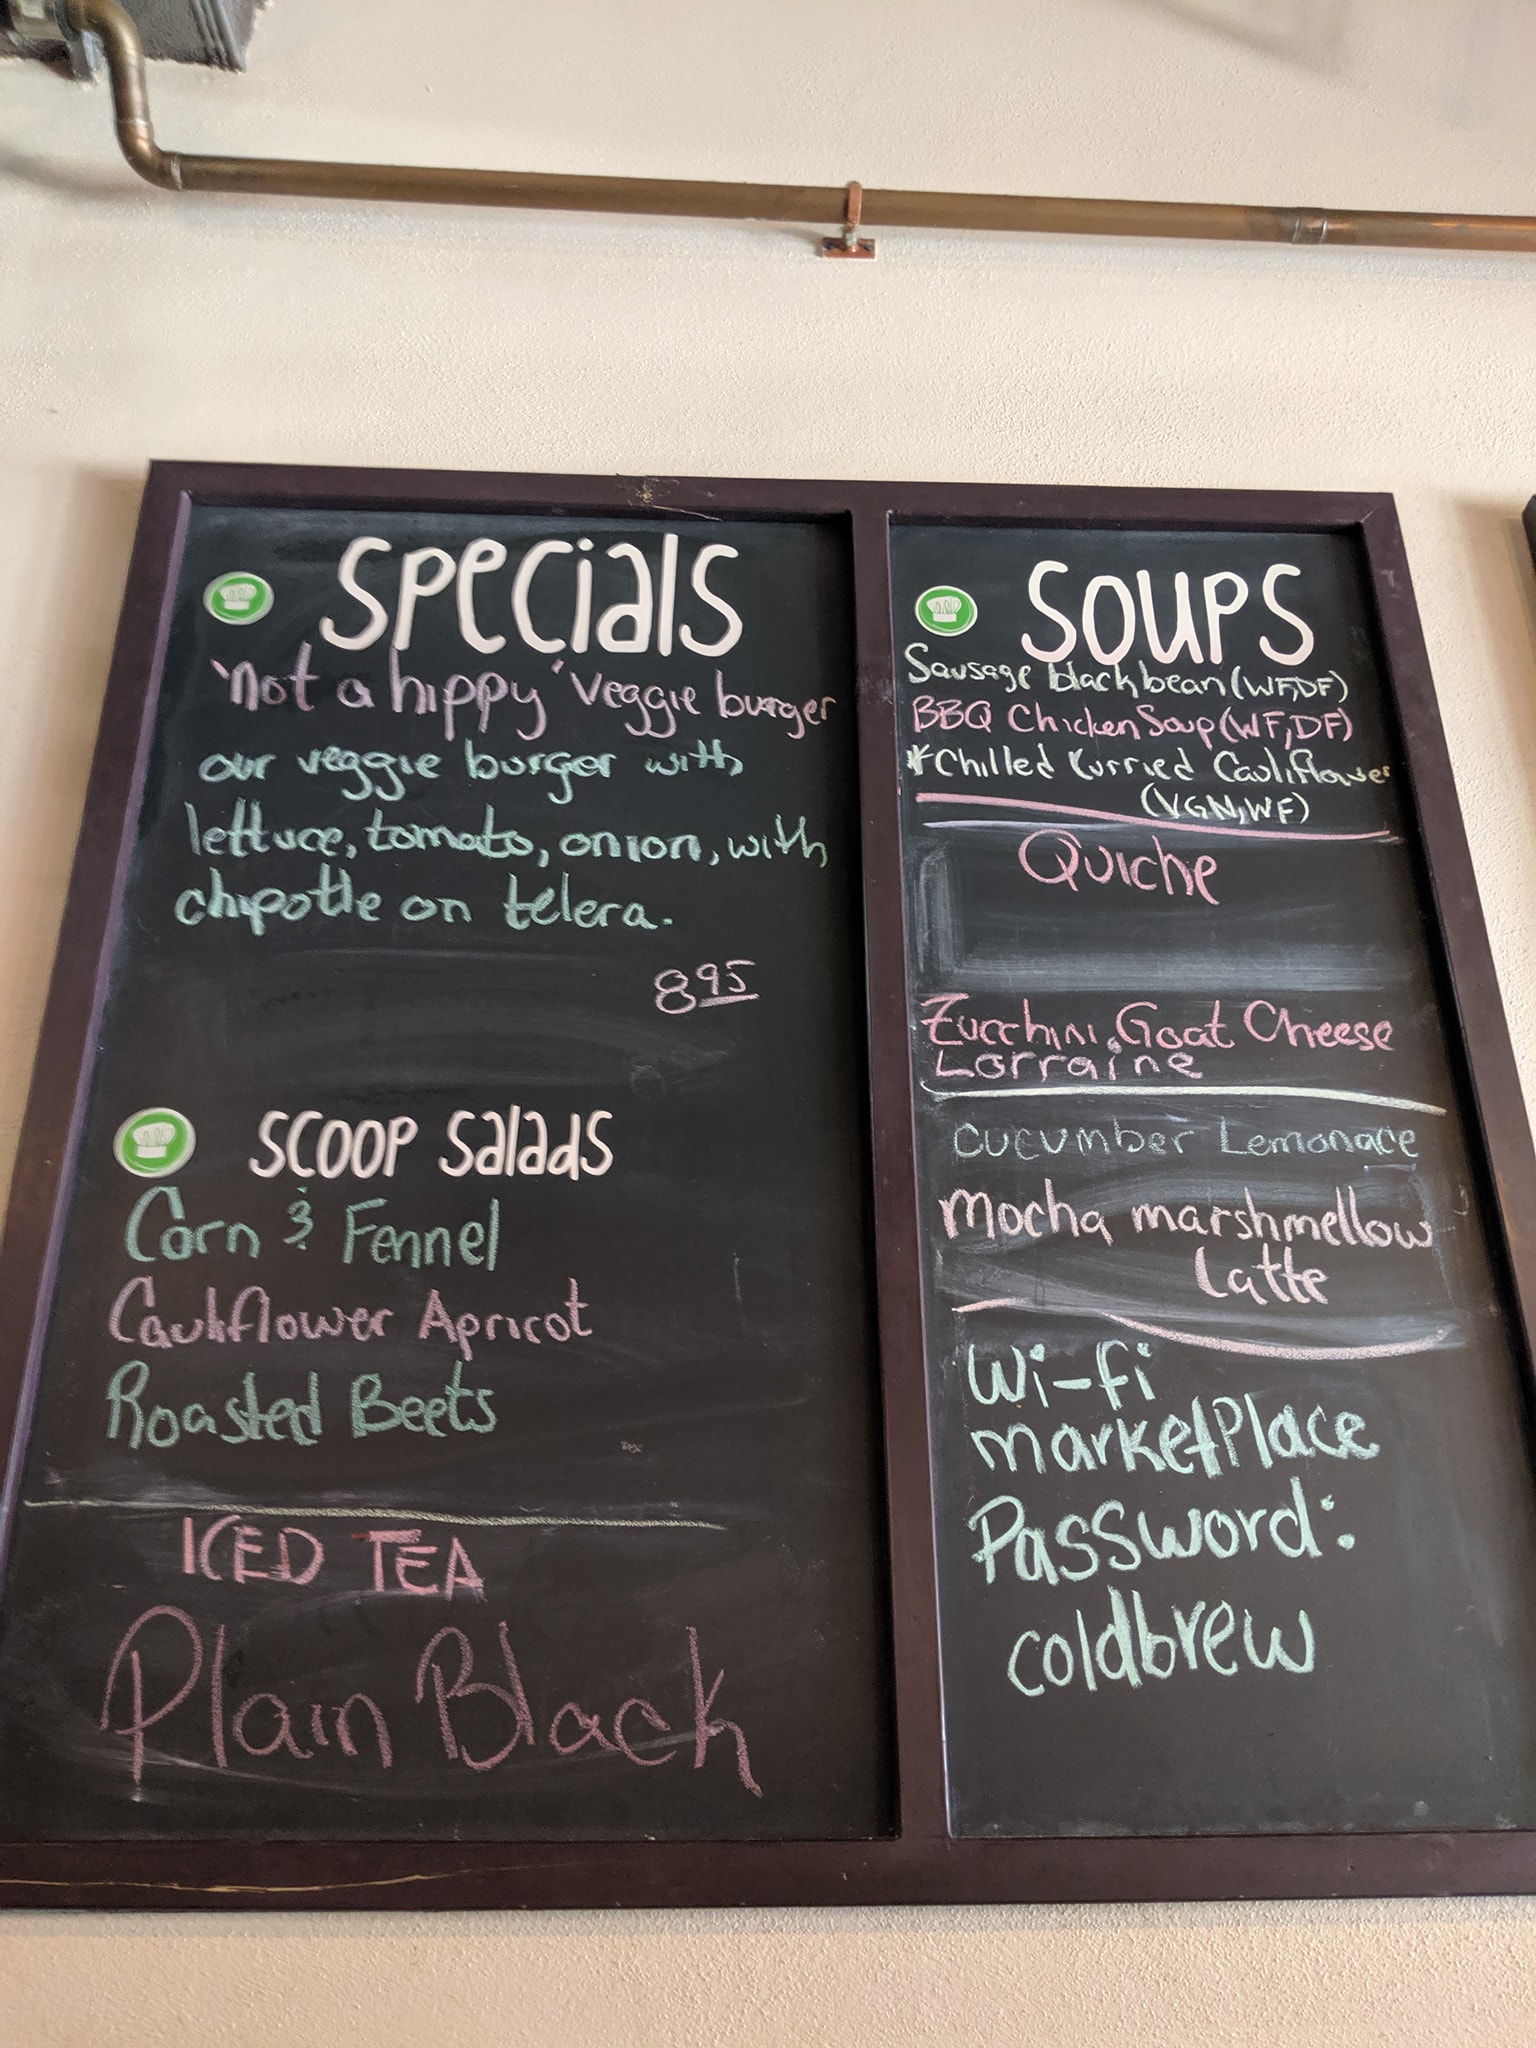 Specials
'not a hippy' veggie burger
our veggie burger with
lettuce, tomato, onion, with
chipotle on telera.
8 95
Scoop Salads
Corn & Fennel
Cauliflower Apricot
Roasted Beets
ICED TEA
Plain Black
Soups
Sausage black bean (WF, DF)
BBQ Chicken Soup (WF, DF)
*Chilled Curried Cauliflower
(VGN, WF)
Quiche
Zucchini, Goat Cheese
Lorraine
Cucumber Lemonade
Mocha marshmellow
Latte
Wi-fi
marketPlace
Password:
coldbrew